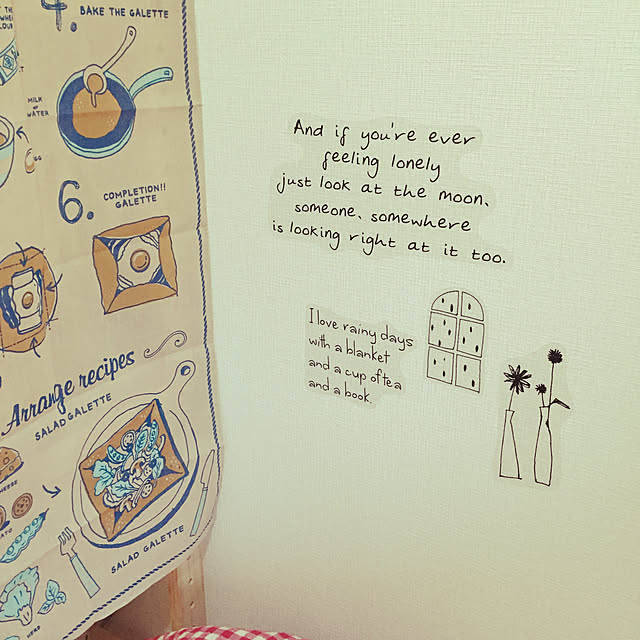 4. BAKE THE GALETTE
MILK
or
WATER
EGG
6. COMPLETION!!
GALETTE
Arrange recipes
SALAD GALETTE
SALAD GALETTE
And if you're ever
feeling lonely
just look at the moon.
someone, somewhere
is looking right at it too.
I love rainy days
with a blanket
and a cup of tea
and a book.